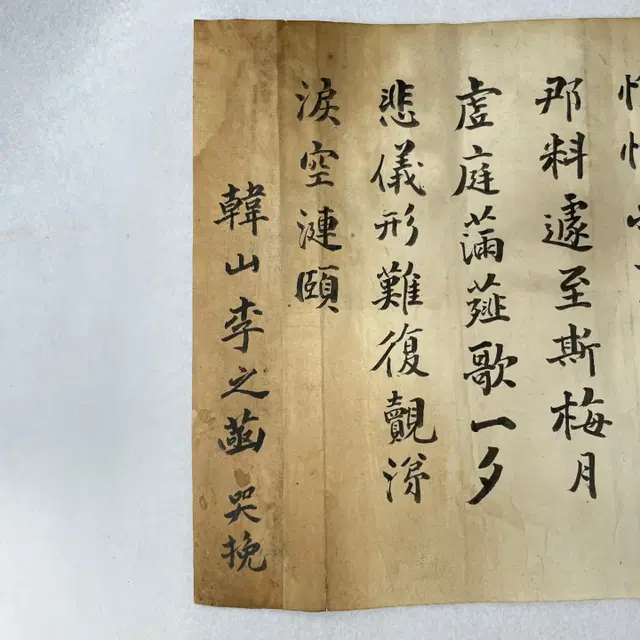 那料遽至斯梅月
虛庭滿薤歌一夕
悲儀形難復覿涕
淚空漣頤
韓山李之菡哭挽